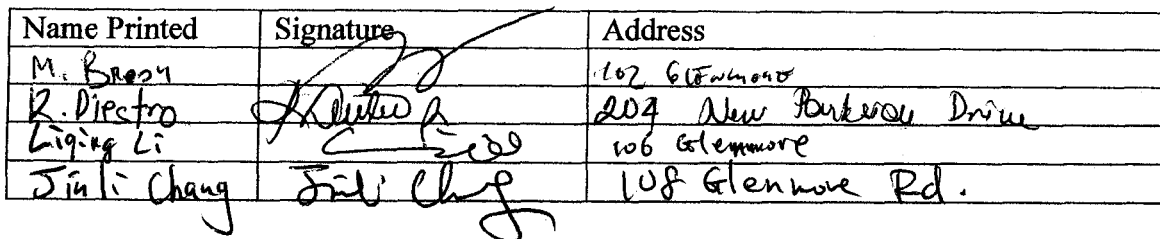 Name Printed Signature Address
M. 102
R. Diestro 204 New Drive
Liqing Li 106 Glenmore
Jinli Chang Jinli Chang 108 Glenmore Rd.